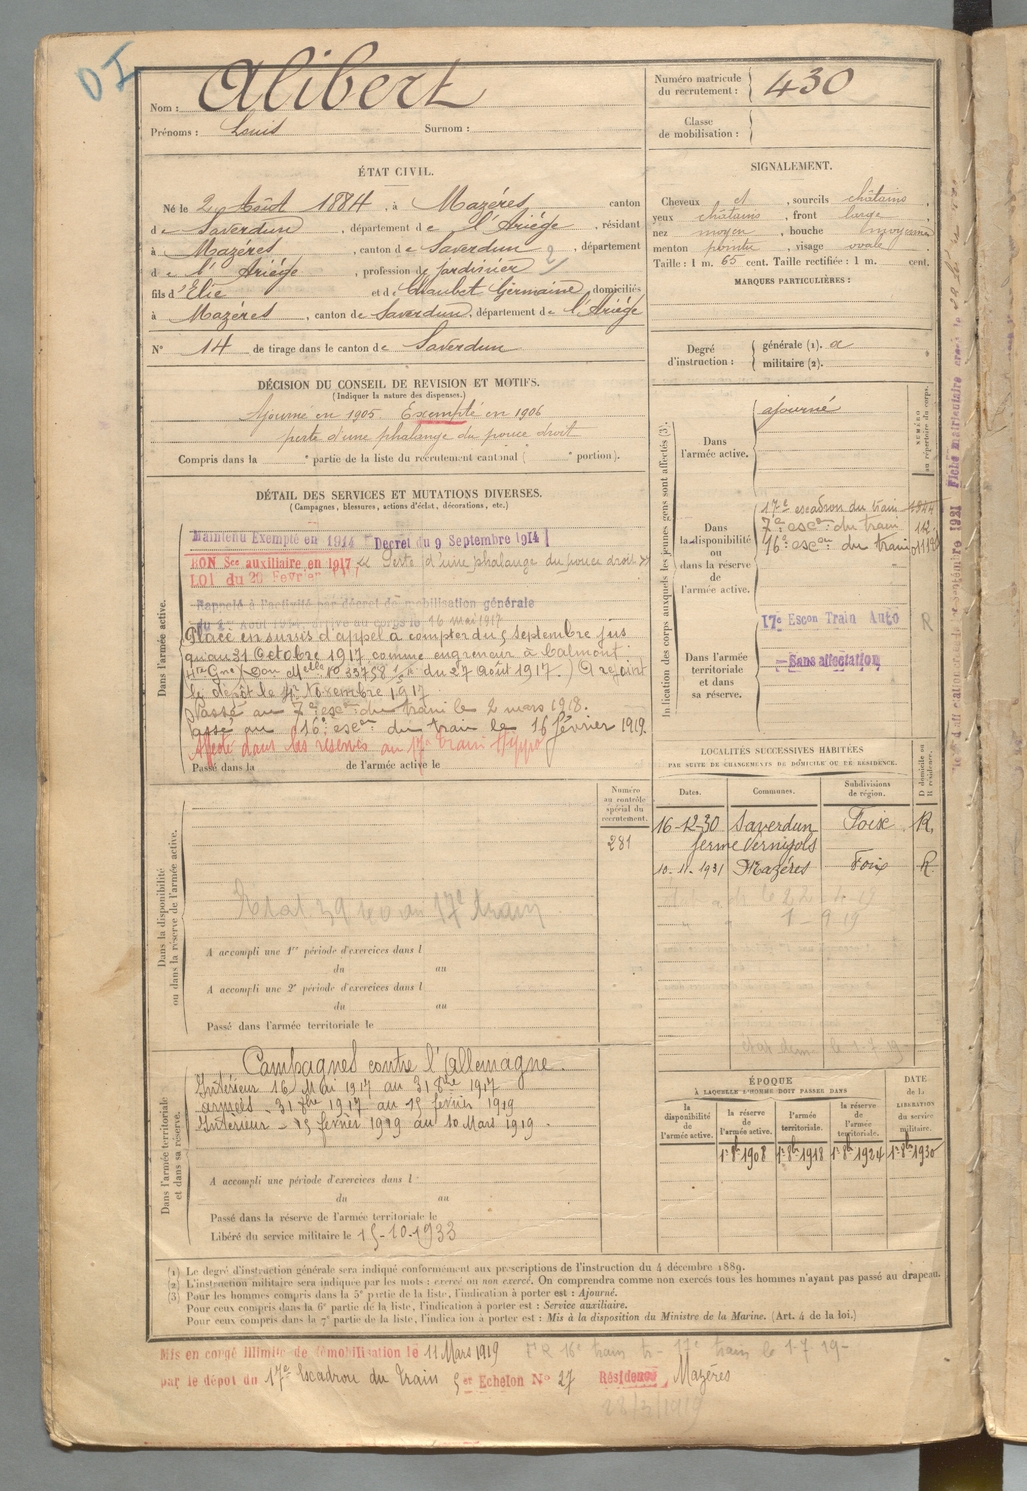 DI
Nom : Alibert
Prénoms : Louis Surnom :
Numéro matricule du recrutement : 430
Classe de mobilisation :
ÉTAT CIVIL.
Né le 2 Août 1884, à Mazéres canton
de Saverdun, département de l'Ariége, résidant
à Mazéres, canton de Saverdun, département
de l'Ariége, profession de jardinier
fils d'Elie et de Chaubet Germaine, domiciliés
à Mazéres, canton de Saverdun, département de l'Ariége
N° 14 de tirage dans le canton de Saverdun
SIGNALEMENT.
Cheveux et, sourcils châtains,
yeux châtains, front large,
nez moyen, bouche moyenne
menton pointu, visage ovale
Taille : 1 m. 65 cent. Taille rectifiée : 1 m. cent.
MARQUES PARTICULIÈRES :
Degré d'instruction :
générale (1). a
militaire (2).
DÉCISION DU CONSEIL DE REVISION ET MOTIFS.
(Indiquer la nature des dispenses.)
Ajourné en 1905. Exempté en 1906
perte d'une phalange du pouce droit
Compris dans la e partie de la liste du recrutement cantonal ( e portion).
DÉTAIL DES SERVICES ET MUTATIONS DIVERSES.
(Campagnes, blessures, actions d'éclat, décorations, etc.)
Dans l'armée active.
Maintenu Exempté en 1914 Decret du 9 Septembre 1914
BON Sce auxiliaire en 1917 « Perte d'une phalange du pouce droit »
LOI du 20 Fevrier 1917
Rappelé à l'activité par décret de mobilisation générale
du 2 Août 1914, arrivé au corps le 16 mai 1917
Placé en sursis d'appel à compter du 5 septembre jus
qu'au 31 Octobre 1917 comme engreneur à Calmont
du 27 Août 1917.) A rejoint
le dépôt le 1er Novembre 1917
Passé au 7e escon du train le 2 mars 1918.
Passé au 16e escon du train le 16 février 1919.
Affecté dans les réserves au 17e train Hippo
Passé dans la de l'armée active le
Indication des corps auxquels les jeunes gens sont affectés (3).
NUMÉRO au répertoire du corps.
Dans l'armée active.
ajourné
Dans la disponibilité ou dans la réserve de l'armée active.
17e escadron du train
7e escon du train
16e escon du train
Dans l'armée territoriale et dans sa réserve.
17e Escon Train Auto R
Sans affectation
LOCALITÉS SUCCESSIVES HABITÉES
PAR SUITE DE CHANGEMENTS DE DOMICILE OU DE RÉSIDENCE.
Dates. Communes. Subdivisions de région. D domicile ou R résidence.
16-12-30 Saverdun Foix R.
ferme Vernizols
10-11-1931 Mazéres Foix R
1-9-19
Dans la disponibilité ou dans la réserve de l'armée active.
Numéro au contrôle spécial du recrutement.
281
17e train
A accompli une 1re période d'exercices dans l
du au
A accompli une 2e période d'exercices dans l
du au
Passé dans l'armée territoriale le
Dans l'armée territoriale et dans sa réserve.
Campagnes contre l'Allemagne.
Intérieur 16 Mai 1917 au 31 8bre 1917
armées - 31 8bre 1917 au 15 fevrier 1919
Intérieur - 15 fevrier 1919 au 10 Mars 1919.
A accompli une période d'exercices dans l
du au
Passé dans la réserve de l'armée territoriale le
Libéré du service militaire le 15-10-1933
ÉPOQUE
À LAQUELLE L'HOMME DOIT PASSER DANS
DATE de la LIBERATION du service militaire.
la disponibilité de l'armée active.
la réserve de l'armée active.
l'armée territoriale.
la réserve de l'armée territoriale.
1er 8bre 1908 1er 8bre 1918 1er 8bre 1924 1er 8bre 1930
(1) Le degré d'instruction générale sera indiqué conformément aux prescriptions de l'instruction du 4 décembre 1889.
(2) L'instruction militaire sera indiquée par les mots : exercé ou non exercé. On comprendra comme non exercés tous les hommes n'ayant pas passé au drapeau.
(3) Pour les hommes compris dans la 5e partie de la liste, l'indication à porter est : Ajourné.
Pour ceux compris dans la 6e partie de la liste, l'indication à porter est : Service auxiliaire.
Pour ceux compris dans la 7e partie de la liste, l'indication à porter est : Mis à la disposition du Ministre de la Marine. (Art. 4 de la loi.)
Mis en congé illimité de démobilisation le 11 Mars 1919
par le dépôt du 17e Escadron du Train 5er Echelon N° 27 Résidence Mazéres